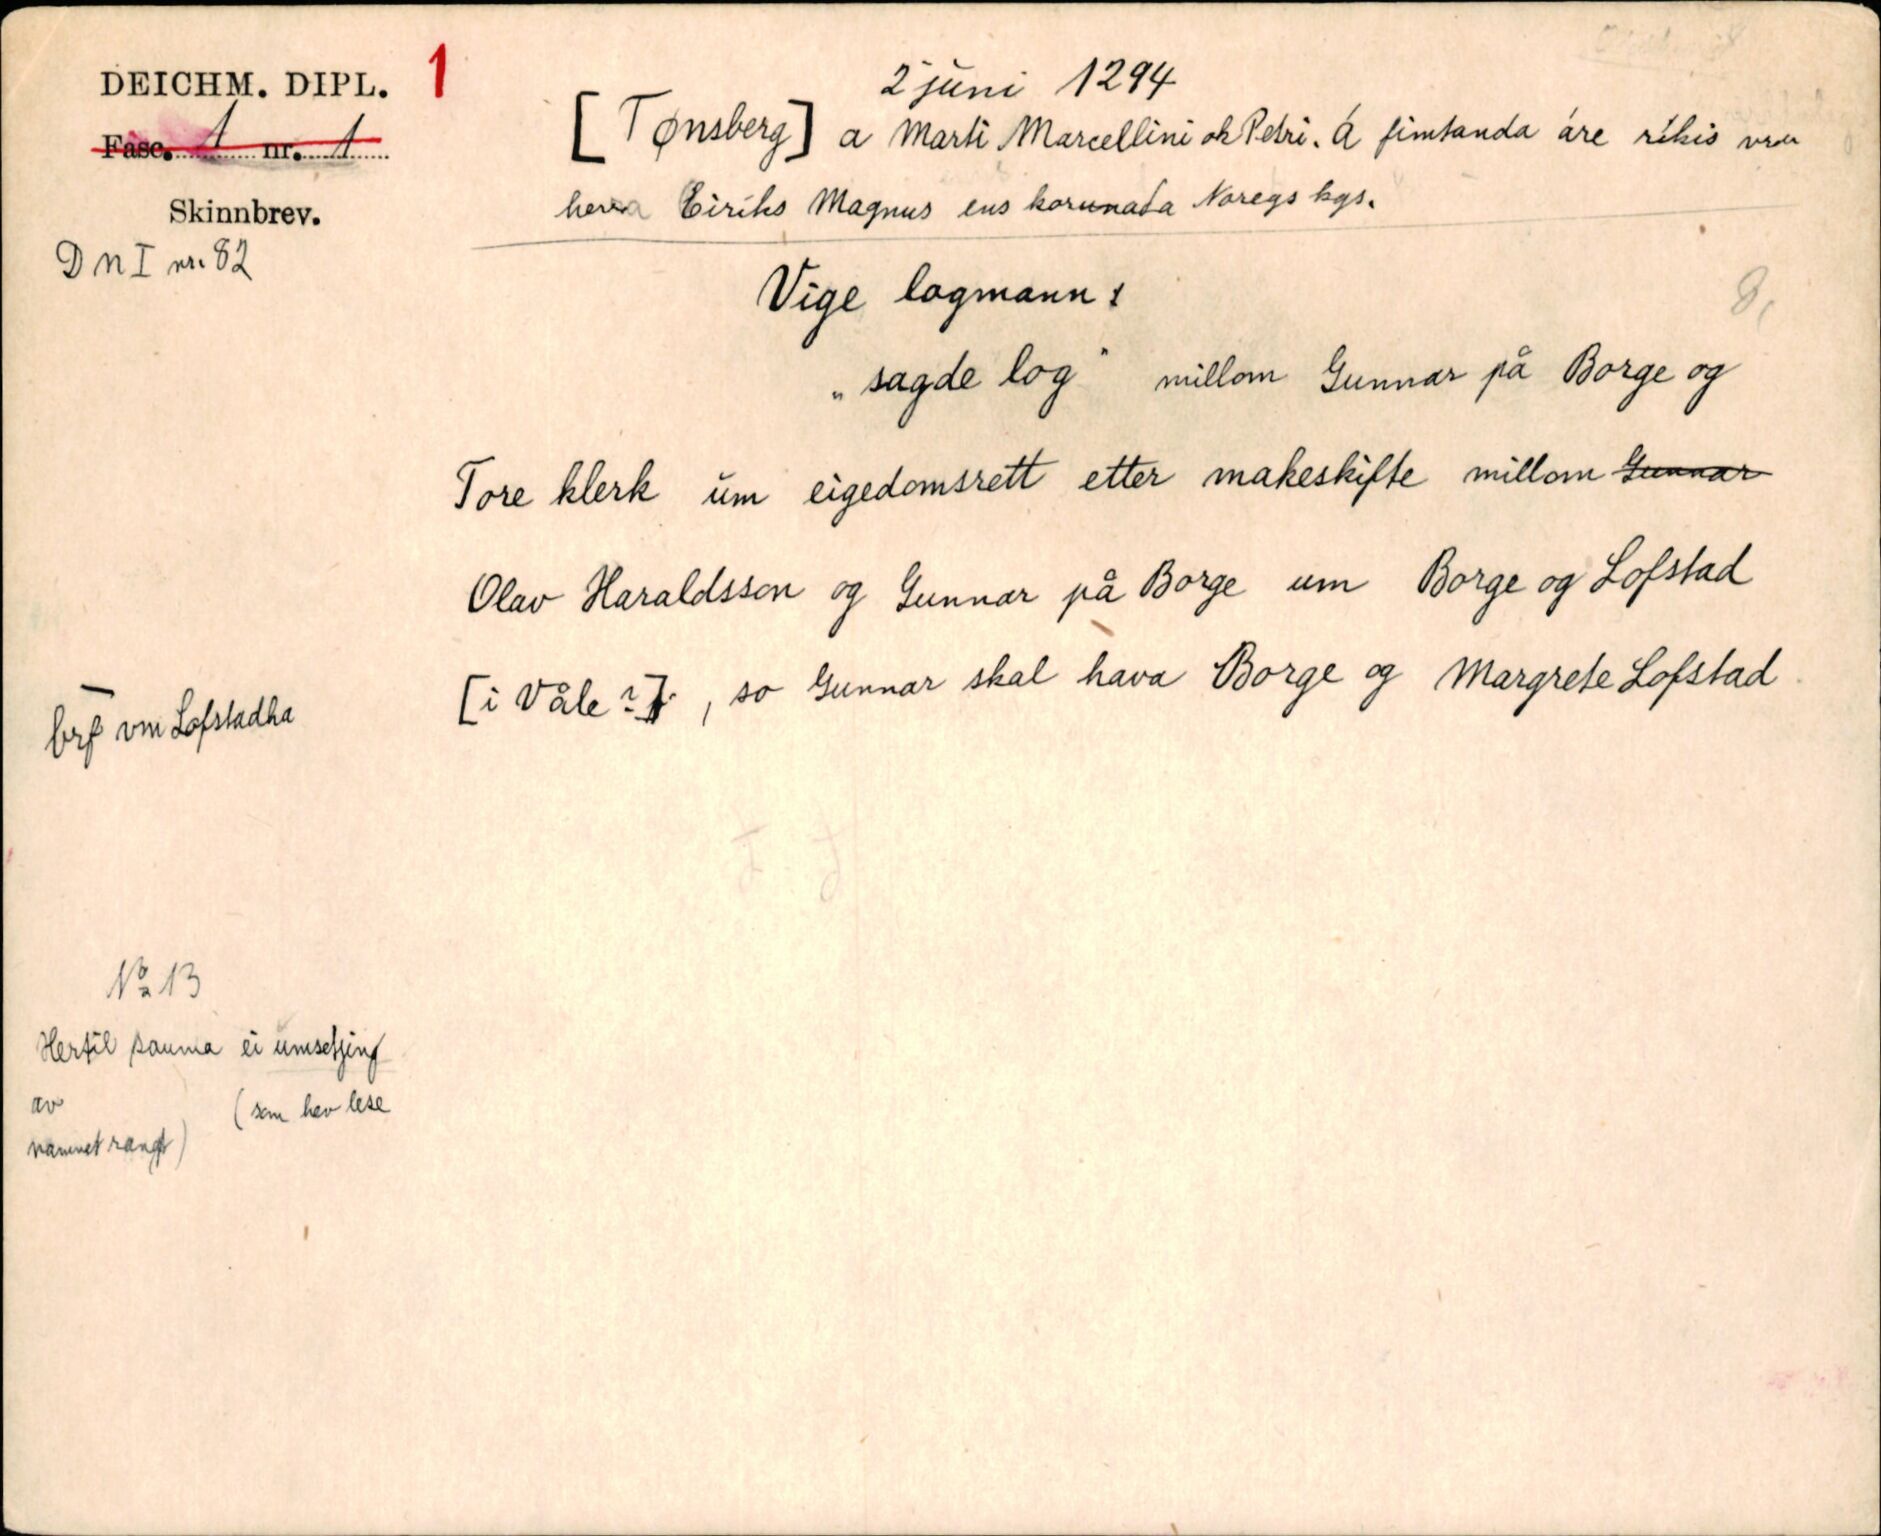 DEICHM. DIPL. 1
Fasc. 1 nr. 1
Skinnbrev.
D N I nr. 82
2 juni 1294
[Tønsberg] a Marti Marcellini ok Petri. Á fimtanda áre ríkis vrar
herra Eiríks Magnus ens korunada Noregs kgs.
8,
Vige logmann:
„sagde log" millom Gunnar på Borge og
Tore klerk um eigedomsrett etter makeskifte millom Gunnar
Olav Haraldsson og Gunnar på Borge um Borge og Lofstad
[i Våle?], so Gunnar skal hava Borge og Margrete Lofstad
brf vm Lofstadha
No 13
Hertil sauma ei umsetjing
av (som hev lese
namnet rangt)